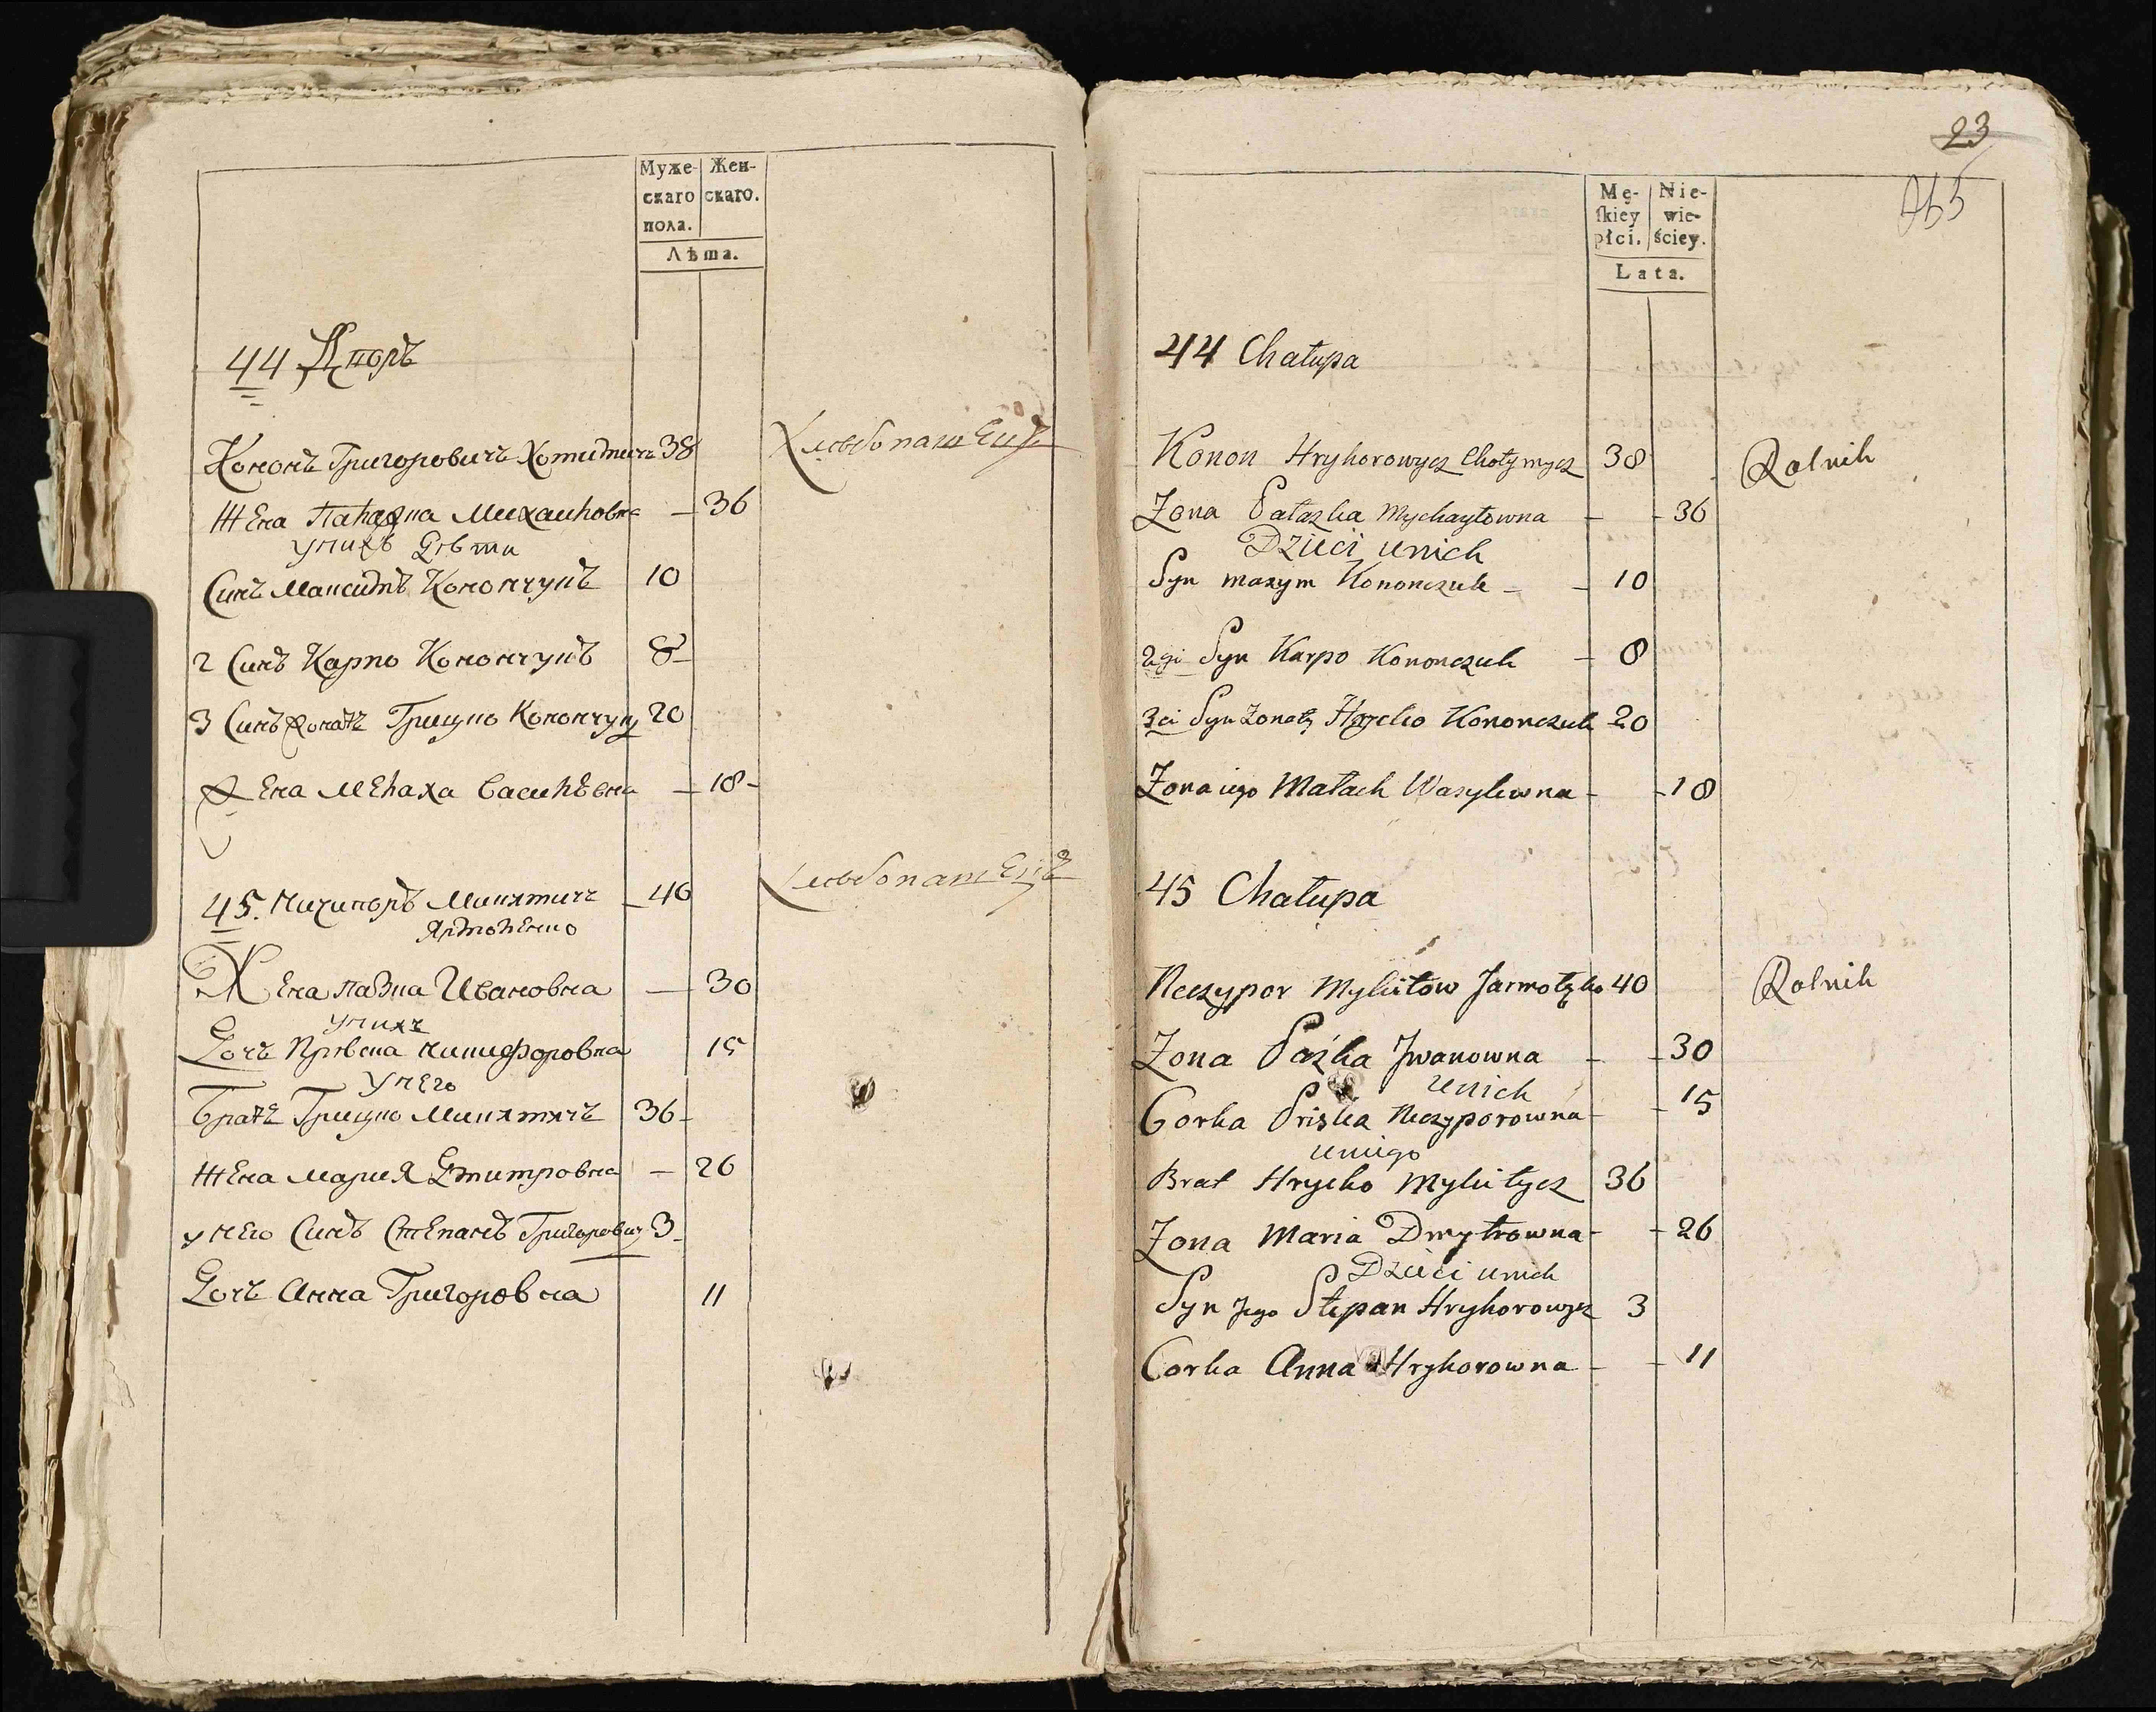 Муже- Жен-
скаго скаго.
пола.
Лѣта.
44 Дворъ
Кононъ Григоровичъ Хотимичъ 38 Хлѣбопашецъ
Жена Палажка Михайловна — 36
у нихъ Дѣти
Синъ Максимъ Конончукъ 10
2 Синъ Карпо Конончукъ 8
3 Синъ жонатъ Грицко Конончукъ 20
Жена Мелаха Василѣвна — 18
45. Ничипоръ Микитичъ — 40 Хлѣбопашецъ
Ярмоленко
Жена Пазка Ивановна — 30
у нихъ
Дочь Прѣска Никифоровна 15
у него
Братъ Грицко Микитичъ 36
Жена Мария Дмитровна — 26
у него Синъ Степанъ Григорович 3
Дочь Анна Григоровна 11
23
Mę- Nie-
ſkiey wie-
płci. ściey.
Lata.
44 Chałupa
Konon Hryhorowycz Chotymycz 38 Rolnik
Zona Pałazka Mychayłowna - - 36
Dzieci unich
Syn maxym Kononczuk - - 10
2gi Syn Karpo Kononczuk - 8
3ci Syn Zonaty Hrycko Kononczuk 20
Zona iego Małach Wasylewna - - 18
45 Chałupa
Neczypor Mykitow Jarmołęko 40 Rolnik
Zona Paźka Jwanowna - - 30
unich
Corka Priska Neczyporowna - - 15
uniego
Brat Hrycko Mykitycz 36
Zona Maria Dmytrowna - - 26
Dzieci unich
Syn Jego Stepan Hryhorowycz 3
Corka Anna Hryhorowna - - 11